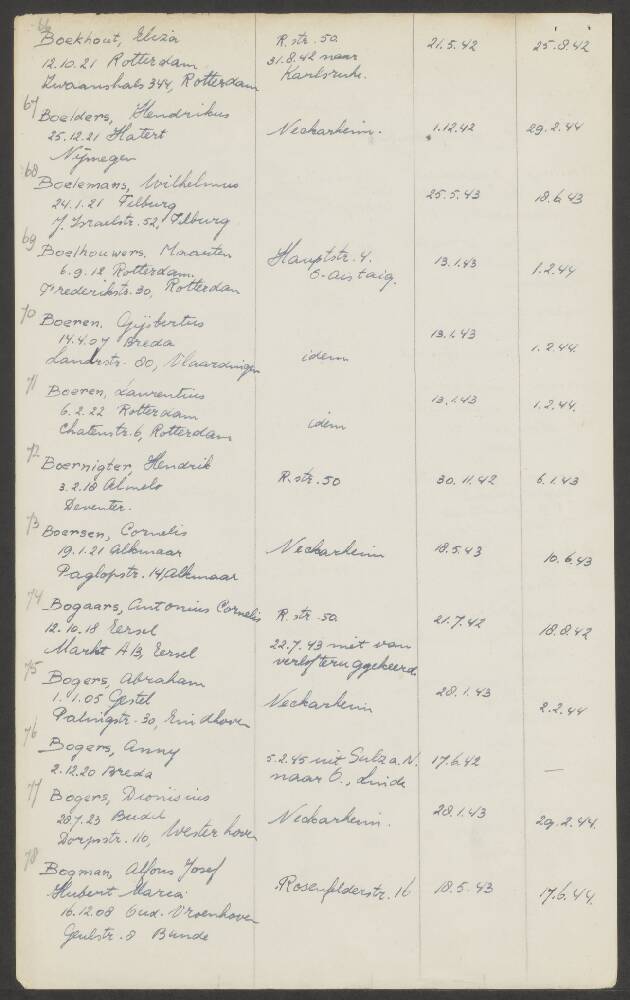 66
Boekhout, Eliza R. str. 50 21.5.42 25.8.42
12.10.21 Rotterdam 31.8.42 naar
Zwaanshals 344, Rotterdam Karlsruhe.
67
Boelders, Hendrikus
25.12.21 Hatert Neckarheim. 1.12.42 29.2.44
Nijmegen
68
Boelemans, Wilhelmus
24.1.21 Tilburg 25.5.43 18.6.43
J. Israelstr. 52, Tilburg
69
Boelhouwers, Maarten Hauptstr. 4. 13.1.43
6.9.12 Rotterdam. O-Aistaig. 1.2.44
Frederikstr. 30, Rotterdam
70
Boeren, Gijsbertus
14.4.07 Breda 13.1.43
Landstr. 80, Vlaardingen idem 1.2.44.
71
Boeren, Laurentius
6.2.22 Rotterdam 13.1.43 1.2.44.
Chatenstr. 6, Rotterdam idem
72
Boernigter, Hendrik
3.2.18 Almelo R. str. 50 30.11.42 6.1.43
Deventer.
73
Boersen, Cornelis
19.1.21 Alkmaar Neckarheim 18.5.43 10.6.43
Paglopstr. 14, Alkmaar
74
Bogaars, Antonius Cornelis R. str. 50
12.10.18 Eersel 22.7.43 niet van 21.7.42 18.8.42
Markt A/3, Eersel verlof teruggekeerd
75
Bogers, Abraham
1.1.05 Gestel Neckarheim 28.1.43 2.2.44
Palingstr. 30, Eindhoven
76
Bogers, Anny 5.2.45 uit Sulz a.N. 17.6.42
2.12.20 Breda naar O., Linde —
77
Bogers, Dionisius
28.7.23 Budel Neckarheim. 28.1.43 29.2.44.
Dorpstr. 110, Westerhoven
78
Bogman, Alfons Josef
Hubert Maria Rosenfelderstr. 16 18.5.43 17.6.44.
16.12.08 Oud. Vroenhoven
Geulstr. 8 Bunde